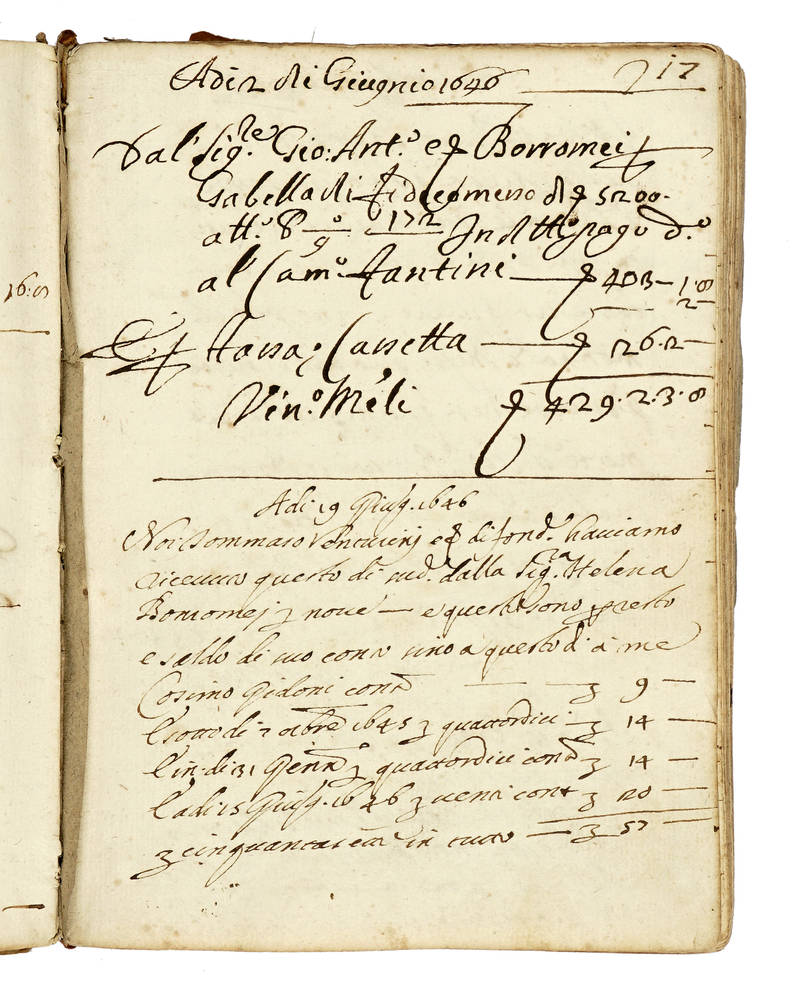 17
Adi 2 di Giugnio 1646
Dal' Sig.re Gio: Ant.o e Borromei
Gabella di fidecomeso di 5200.
att.o 8 9 172 In pago d.o
al' Cam.o Fantini 403-1.8
2
16:8
E Tassa, Cassetta 26.2-
Vin.o Meli 429.2.3.8
Adi 19 Giug. 1646
Noi Tommaso Venturinj e di fond.o haviamo
riceuuto questo di sud.o dalla Sig.ra Helena
Borromej noue - e questi sono resto
e saldo di suo conto sino a questo dì à me
Cosimo Gidoni cont 9 -
E sotto di 7 1645 quattordici 14 -
E in: di 31 Genn.o quattordici cont 14 -
E adi 15 Giug. 1646 uenti cont 20 -
cinquantasette in tutto - 57 -